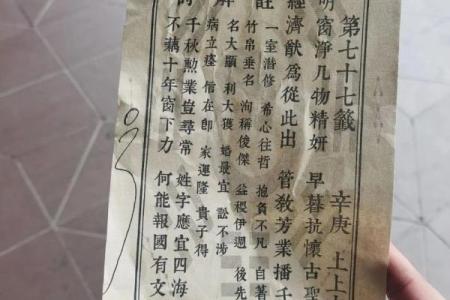 第七十七籤 辛庚 上上
明窗淨几物精妍 早暮抗懷古聖
經濟猷為從此出 管教芳業播千
註 一室潛修 希心往哲 抱負不凡 自著
竹帛垂名 洵稱俊傑 益稷伊週 後先
解 名大顯 利大獲 婚最宜 訟不涉
病立痊 信在即 家運隆 貴子得
千秋勲業豈尋常 姓字應宜四海
不藉十年窗下力 何能報國有文